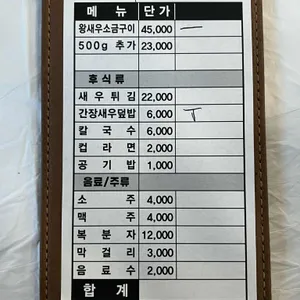 메 뉴 단 가
왕새우소금구이 45,000 一
500g 추가 23,000
후식류
새 우 튀 김 22,000
간장새우덮밥 6,000 T
칼 국 수 6,000
컵 라 면 2,000
공 기 밥 1,000
음료/주류
소 주 4,000
맥 주 4,000
복 분 자 12,000
막 걸 리 3,000
음 료 수 2,000
합 계